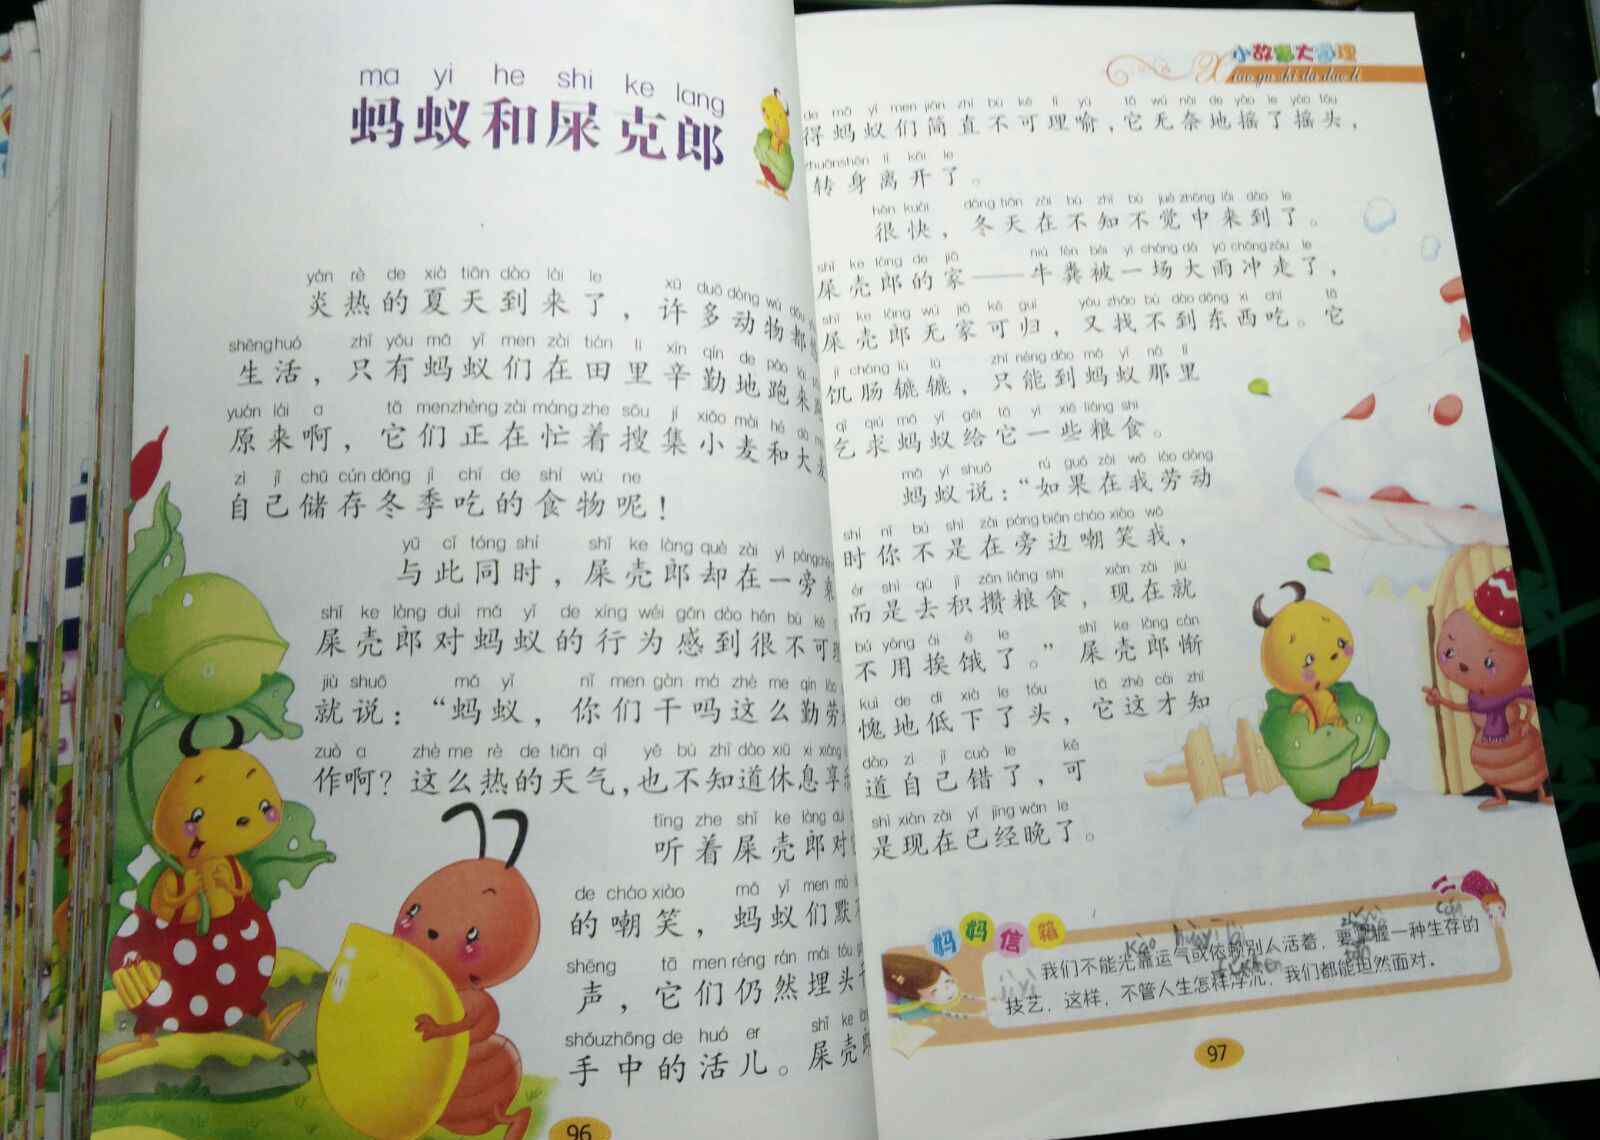 ma yi he shi ke lang
蚂蚁和屎克郎
yán rè de xià tiān dào lái le xǔ duō dòng wù dōu
炎热的夏天到来了，许多动物都
shēng huó zhǐ yǒu mǎ yǐ men zài tián li xīn qín de pǎo lái
生活，只有蚂蚁们在田里辛勤地跑来
yuán lái a tā men zhèng zài máng zhe sōu jí xiǎo mài hé dà
原来啊，它们正在忙着搜集小麦和大
zì jǐ chǔ cún dōng jì chī de shí wù ne
自己储存冬季吃的食物呢！
yǔ cǐ tóng shí shǐ ke làng què zài yì páng
与此同时，屎壳郎却在一旁
shǐ ke làng duì mǎ yǐ de xíng wéi gǎn dào hěn bù kě
屎壳郎对蚂蚁的行为感到很不可
jiù shuō mǎ yǐ nǐ men gàn má zhè me qín láo
就说：“蚂蚁，你们干吗这么勤劳
zuò a zhè me rè de tiān qì yě bù zhī dào xiū xi xiǎng
作啊？这么热的天气，也不知道休息享
tīng zhe shǐ ke làng duì
听着屎壳郎对
de cháo xiào mǎ yǐ men mò
的嘲笑，蚂蚁们默
shēng tā men réng rán mái tóu
声，它们仍然埋头
shǒu zhōng de huó er shǐ ke
手中的活儿。屎壳
96
小故事大道理
Xiao gu shi da dao li
de mǎ yǐ men jiǎn zhí bù kě lǐ yù tā wú nài de yáo le yáo tóu
得蚂蚁们简直不可理喻，它无奈地摇了摇头，
zhuǎn shēn lí kāi le
转身离开了。
hěn kuài dōng tiān zài bù zhī bù jué zhōng lái dào le
很快，冬天在不知不觉中来到了。
shǐ ke làng de jiā niú fèn bèi yì chǎng dà yǔ chōng zǒu le
屎壳郎的家——牛粪被一场大雨冲走了，
shǐ ke làng wú jiā kě guī yòu zhǎo bú dào dōng xi chī tā
屎壳郎无家可归，又找不到东西吃。它
jī cháng lù lù zhǐ néng dào mǎ yǐ nà lǐ
饥肠辘辘，只能到蚂蚁那里
qǐ qiú mǎ yǐ gěi tā yì xiē liáng shi
乞求蚂蚁给它一些粮食。
mǎ yǐ shuō rú guǒ zài wǒ láo dòng
蚂蚁说：“如果在我劳动
shí nǐ bú shì zài páng biān cháo xiào wǒ
时你不是在旁边嘲笑我，
ér shì qù jī zǎn liáng shi xiàn zài jiù
而是去积攒粮食，现在就
bú yòng ái è le shǐ ke làng cán
不用挨饿了。”屎壳郎惭
kuì de dī xià le tóu tā zhè cái zhī
愧地低下了头，它这才知
dào zì jǐ cuò le kě
道自己错了，可
shì xiàn zài yǐ jīng wǎn le
是现在已经晚了。
妈妈信箱
kào
我们不能光靠运气或依赖别人活着，要掌握一种生存的
技艺，这样，不管人生怎样浮沉，我们都能坦然面对。
97